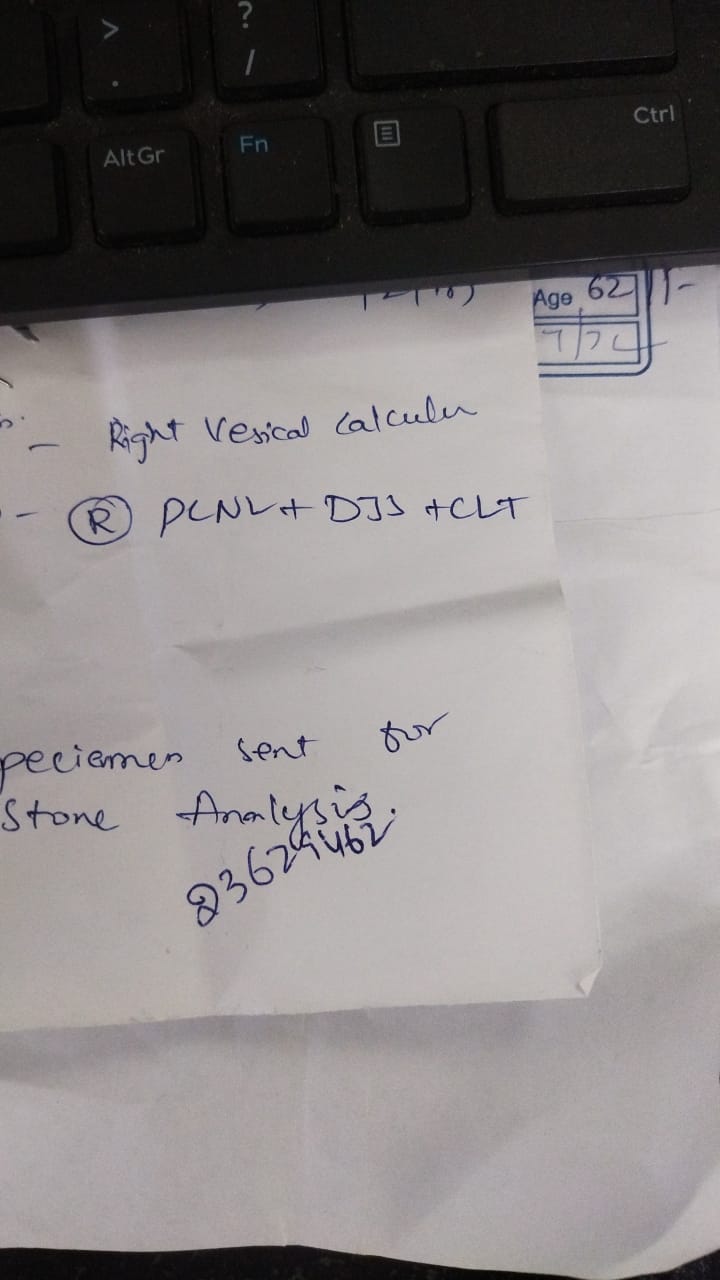 > ?
. /
AltGr Fn Ctrl
Age 62
- Right Vesical Calculu
- R PCNL + DJS + CLT
peciemen sent for
Stone Analysis.
23629462